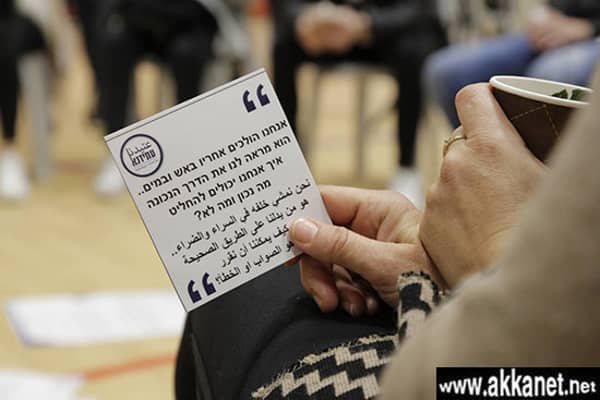 אנחנו הולכים אחריו באש ובמים..
הוא מראה לנו את הדרך הנכונה
איך אנחנו יכולים להחליט
מה נכון ומה לא?
نحن نمشي خلفه في السراء والضراء..
هو من يدلنا على الطريق الصحيحة
كيف يمكننا ان نقرر
هو الصواب او الخطأ؟
www.akkanet.net